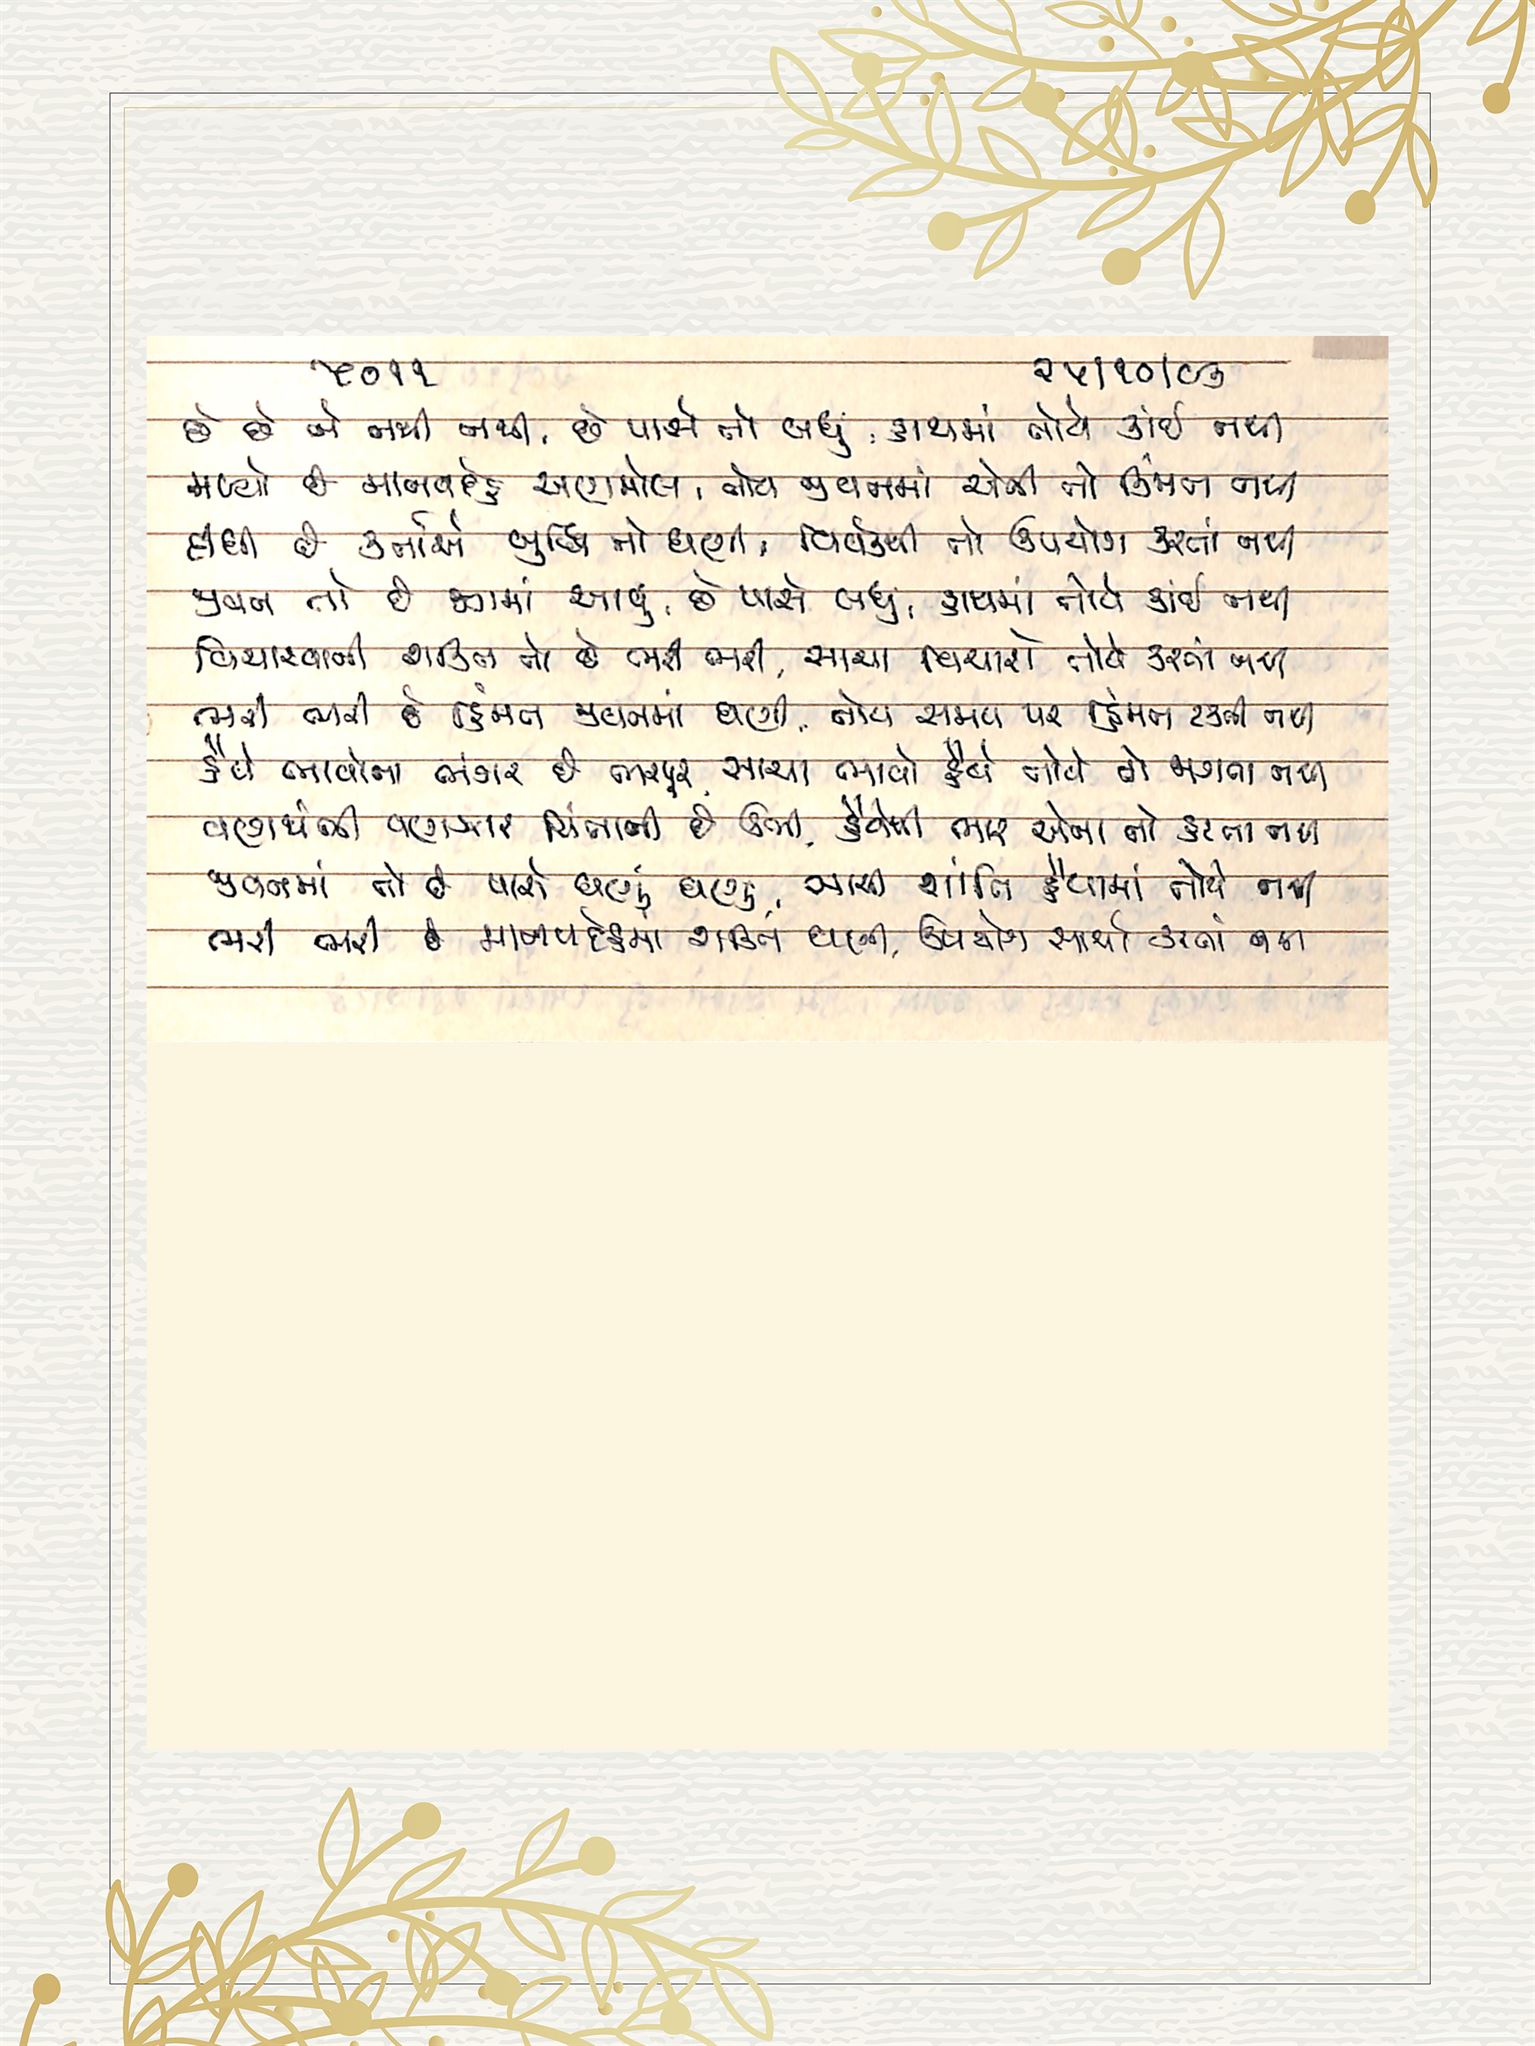 ૫૦૧૧ ૨૫/૧૦/૯૩
છે છે ને નથી નથી, છે પાસે તો બધું, હાથમાં તોયે કાંઈ નથી
મળ્યો છે માનવદેહ અણમોલ, તોય જીવનમાં એની તો કિંમત નથી
દીધી છે કર્તાએ બુદ્ધિ તો ઘણી, વિવેકથી તો ઉપયોગ કરતાં નથી
જીવન તો છે આવું, છે પાસે બધું, હાથમાં તોયે કાંઈ નથી
વિચારવાની શક્તિ તો છે ભરી ભરી, સાચા વિચારો તોયે કરતાં નથી
ભરી ભરી છે હિંમત જીવનમાં ઘણી, તોય સમય પર હિંમત ટકતી નથી
હૈયે ભાવોના ભંડાર છે ભરપૂર, સાચા ભાવો હૈયે તોયે તો જાગતા નથી
વણથંભી વણઝાર ચિંતાની છે ઊભી, હૈયેથી ભાર એના તો હટતા નથી
જીવનમાં તો છે પાસે ઘણું ઘણું, સાચી શાંતિ હૈયામાં તોયે નથી
ભરી ભરી છે માનવદેહમાં શક્તિ ઘણી, ઉપયોગ સાચો કરતાં નથી